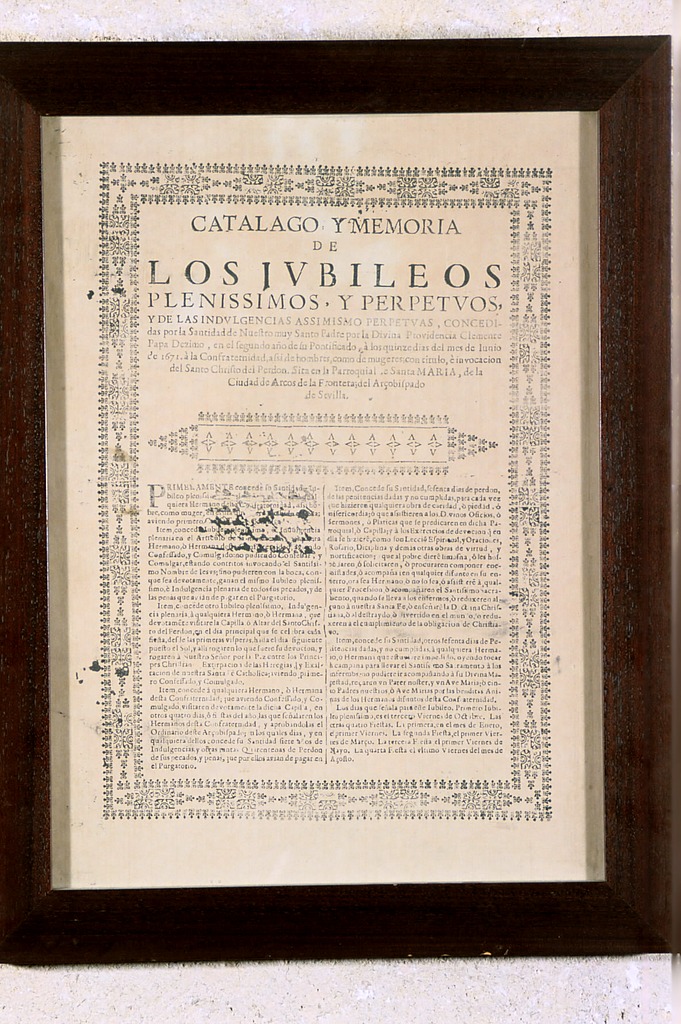 CATALAGO, Y MEMORIA
DE
LOS JVBILEOS
PLENISSIMOS, Y PERPETVOS,
Y DE LAS INDVLGENCIAS ASSIMISMO PERPETVAS, CONCEDI-
das por la Santidad de Nuestro muy Santo Padre por la Divina Providencia Clemente
Papa Dezimo, en el segundo año de su Pontificado, à los quinze dias del mes de Iunio
de 1671. à la Confraternidad, assi de hombres, como de mugeres, con titulo, è invocacion
del Santo Christo del Perdon. Sita en la Parroquial de Santa MARIA, de la
Ciudad de Arcos de la Frontera, del Arçobispado
de Sevilla.
PRIMERAMENTE concede su Santidad
bileo plenissi
quiera Hermano
bre, como muger,
aviendo primero
Item, concede Iubileo
plenaria en el Articulo de
Hermano, ò Herma
Confessado, y Comulgado no pudiendo Confessar, y
Comulgar, estando contritos invocando el Santissi-
mo Nombre de Iesus, sino pudieren con la boca, con-
que sea devotamente, ganan el mismo Iubileo plenis-
simo, è Indulgencia plenaria de todos sus pecados, y de
las penas que avian de pagar en el Purgatorio.
Item, concede otro Iubileo plenissimo, è Indulgen-
cia plenaria, à qualquiera Hermano, ò Hermana, que
devotamente visitare la Capilla, ò Altar del Santo Chris-
to del Perdon, en el dia principal que se celebra cada
fiesta, desde las primeras visperas, hasta el dia siguiente
puesto el Sol, y alli rogaren lo que fuere su devocion, y
rogaren à Nuestro Señor por la Paz entre los Princi-
pes Christianos Extirpacion de las Heregias, y Exal-
tacion de nuestra Santa Fè Catholica; aviendo prime-
ro Confessado, y Comulgado.
Item, concede à qualquiera Hermano, ò Hermana
desta Confraternidad, que aviendo Confessado, y Co-
mulgado, visitaren devotamente la dicha Capilla, en
otros quatro dias, ò fiestas del año, las que señalaren los
Hermanos desta Confraternidad, y aprobandolas el
Ordinario deste Arçobispado; en los quales dias, y en
qualquiera dellos concede su Santidad siete años de
Indulgencias, y otras tantas Quarentenas de Perdon
de sus pecados, y penas, que por ellos avian de pagar en
el Purgatorio.
Item, Concede su Santidad, sesenta dias de perdon,
de las penitencias dadas y no cumplidas, para cada vez
que hizieren qualquiera obra de caridad, ò piedad, ò
misericordia, ò que assistieren à los Divinos Oficios, ò
Sermones, ò Platicas que se predicaren en dicha Par-
roquial, ò Capilla, y à los Exercicios de devocion
ella se hiziere, como son Lecciò Espiritual, y Oraciones,
Rosario, Disciplina, y demàs otras obras de virtud, y
mortificacion; que al pobre diere limosna, ò les hos-
pedaren, ò solicitaren, ò procuraren componer ene-
mistades, ò acompañaren qualquier difunto en su en-
tierro, ora sea Hermano, ò no lo sea, ò assistiere à qual-
quier Procession, ò acompañaren el Santissimo Sacra-
mento, quando se lleva à los enfermos, ò reduxeren al-
guno à nuestra Santa Fè, ò enseñare la Doctrina Chris-
tiana, ò al destraydo, ò divertido en el mundo, le redu-
xeren al cumplimiento de la obligacion de Christia-
no.
Item, concede su Santidad, otros sesenta dias de Pe-
nitencias dadas, y no cumplidas, à qualquiera Herma-
no, ò Hermana que estuviere impedido, oyendo tocar
la campana para llevar el Santissimo Sacramento à los
enfermos no pudiere ir acompañando à su Divina Ma-
gestad, rezare vn Pater noster, y vn Ave Maria, ò cin-
co Padres nuestros, ò Ave Marias por las benditas Ani-
mas de los Hermanos difuntos desta Confraternidad.
Los dias que señala para este Iubileo. Primer Iubi-
leo plenissimo, es el tercero Viernes de Octubre. Las
otras quatro Fiestas. La primera, en el mes de Enero,
el primer Viernes. La segunda Fiesta, el primer Vier-
nes de Março. La tercera Fiesta el primer Viernes de
Mayo. La quarta Fiesta el vltimo Viernes del mes de
Agosto.